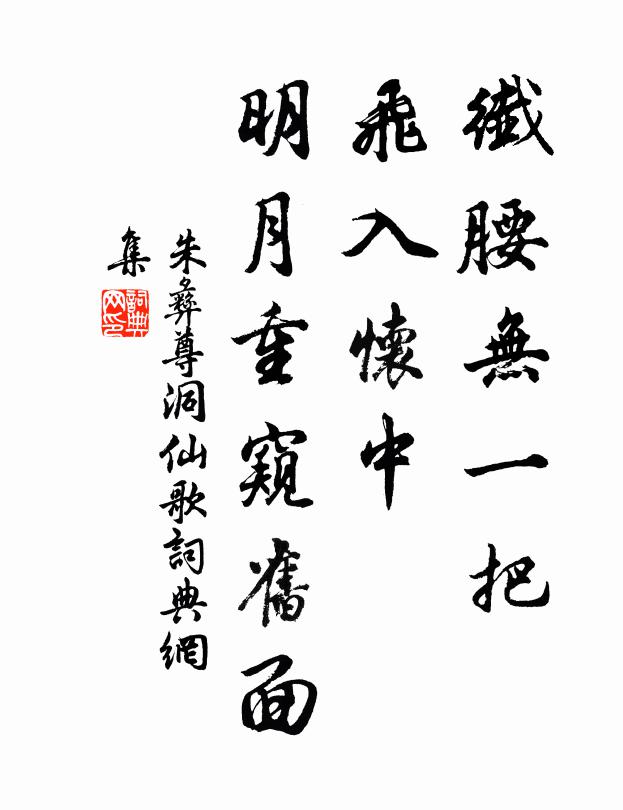 纖腰無一把
飛入懷中
明月重窺舊面
朱彝尊洞仙歌詞典網
集
詞典网印